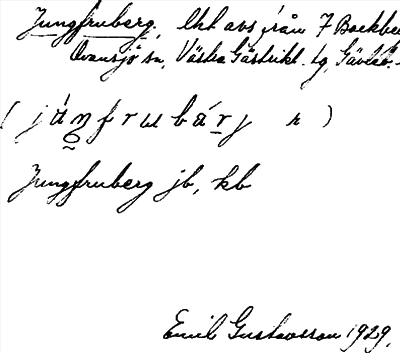 Jungfruberg, lht avs från 7 Backbe
Ovansjö sn, Västra Gästrikl. tg, Gävleb.
(jáŋfrubárj n)
Jungfruberg jb, kb
Emil Gustavsson 1929.